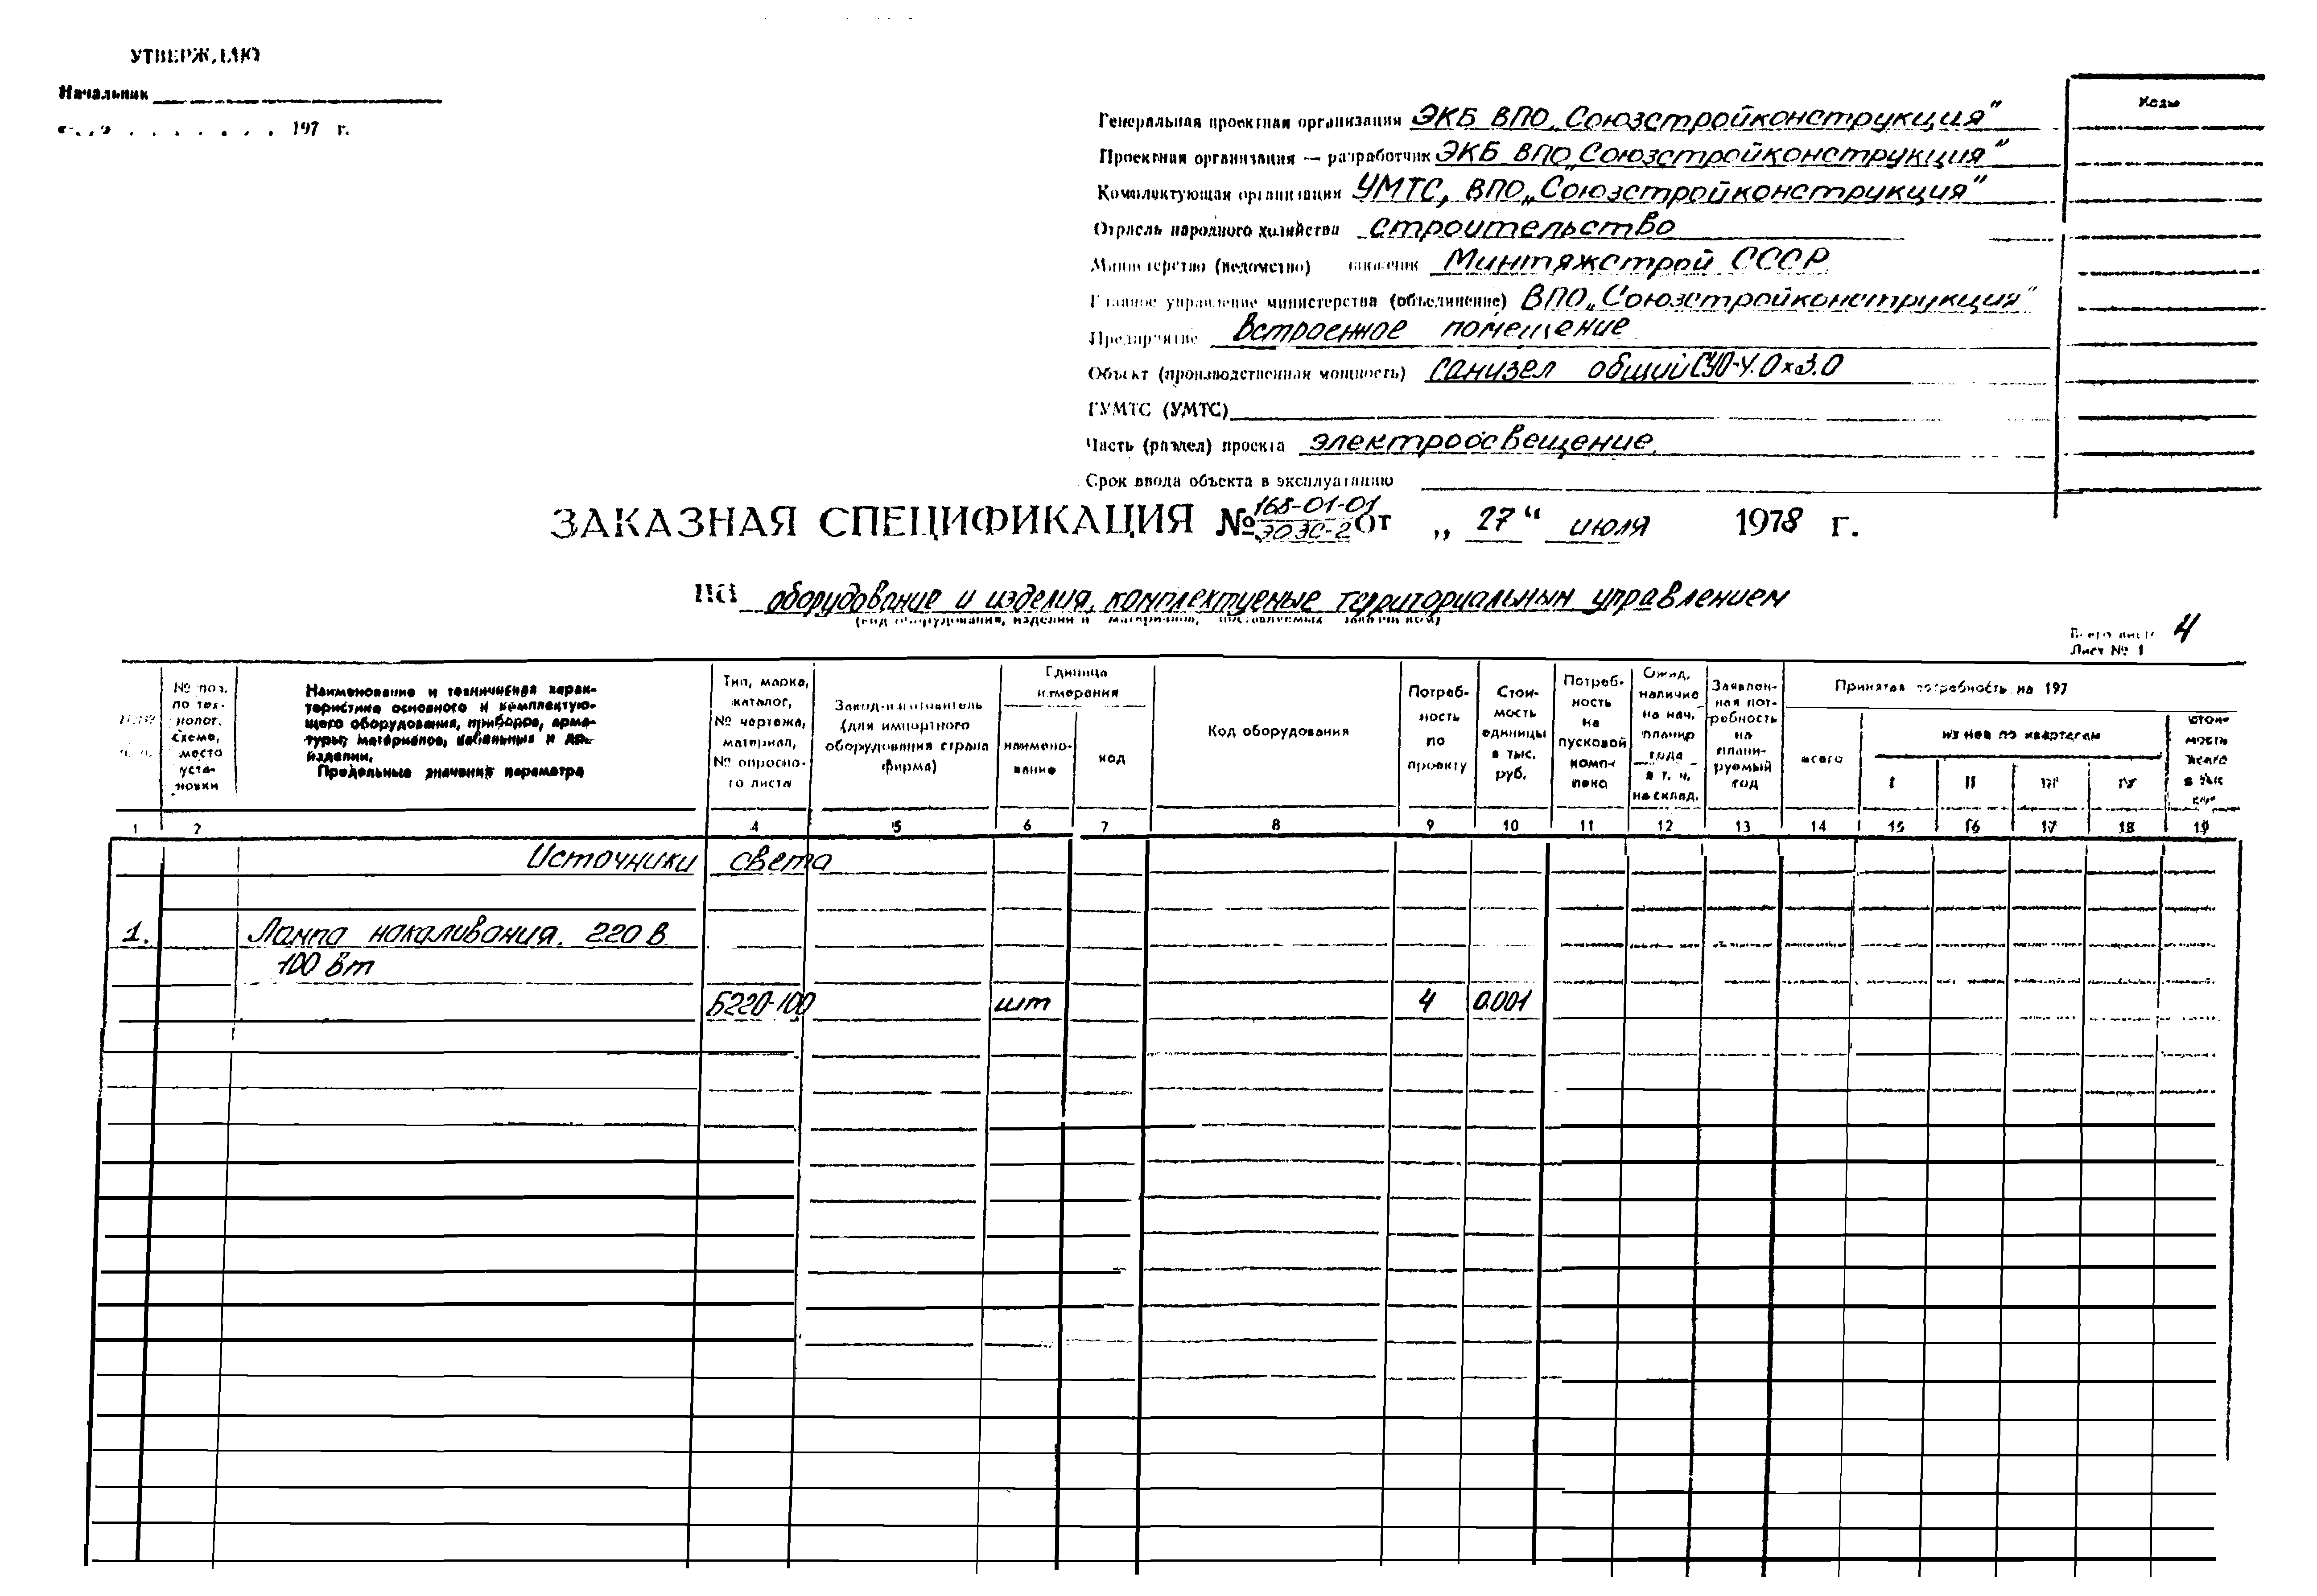 УТВЕРЖДАЮ
Начальник
197 г.
Коды
Генеральная проектная организация ЭКБ ВПО „Союзстройконструкция"
Проектная организация — разработчик ЭКБ ВПО „Союзстройконструкция"
Комплектующая организация УМТС, ВПО „Союзстройконструкция"
Отрасль народного хозяйства строительство
Министерство (ведомство) заказчик Минтяжстрой СССР
Главное управление министерства (объединение) ВПО „Союзстройконструкция"
Предприятие Встроенное помещение
Объект (производственная мощность) санузел общий СУО-4.0х3.0
ГУМТС (УМТС)
Часть (раздел) проекта электроосвещение
Срок ввода объекта в эксплуатацию
ЗАКАЗНАЯ СПЕЦИФИКАЦИЯ № 168-01-01 ЭОЗС-2 от „27" июля 1978 г.
на оборудование и изделия, комплектуемые территориальным управлением
(вид оборудования, изделий и материалов, поставляемых заказчиком)
Всего листов 4
Лист № 1
№ поз. по технолог. схеме, место установки
Наименование и техническая характеристика основного и комплектующего оборудования, приборов, арматуры, материалов, кабельных и др. изделий.
Предельные значения параметра
Тип, марка, каталог, № чертежа, материал, № опросного листа
Завод-изготовитель (для импортного оборудования страна фирма)
Единица измерения
наименование
код
Код оборудования
Потребность по проекту
Стоимость единицы в тыс. руб.
Потребность на пусковой комплекс
Ожид. наличие на нач. планир года в т. ч. на склад.
Заявленная потребность на планируемый год
Принятая потребность на 197
всего
из нее по кварталам
I II III IV
стоимость всего в тыс руб
1 2 4 5 6 7 8 9 10 11 12 13 14 15 16 17 18 19
Источники света
1. Лампа накаливания. 220 В
100 Вт
Б220-100 шт 4 0.001